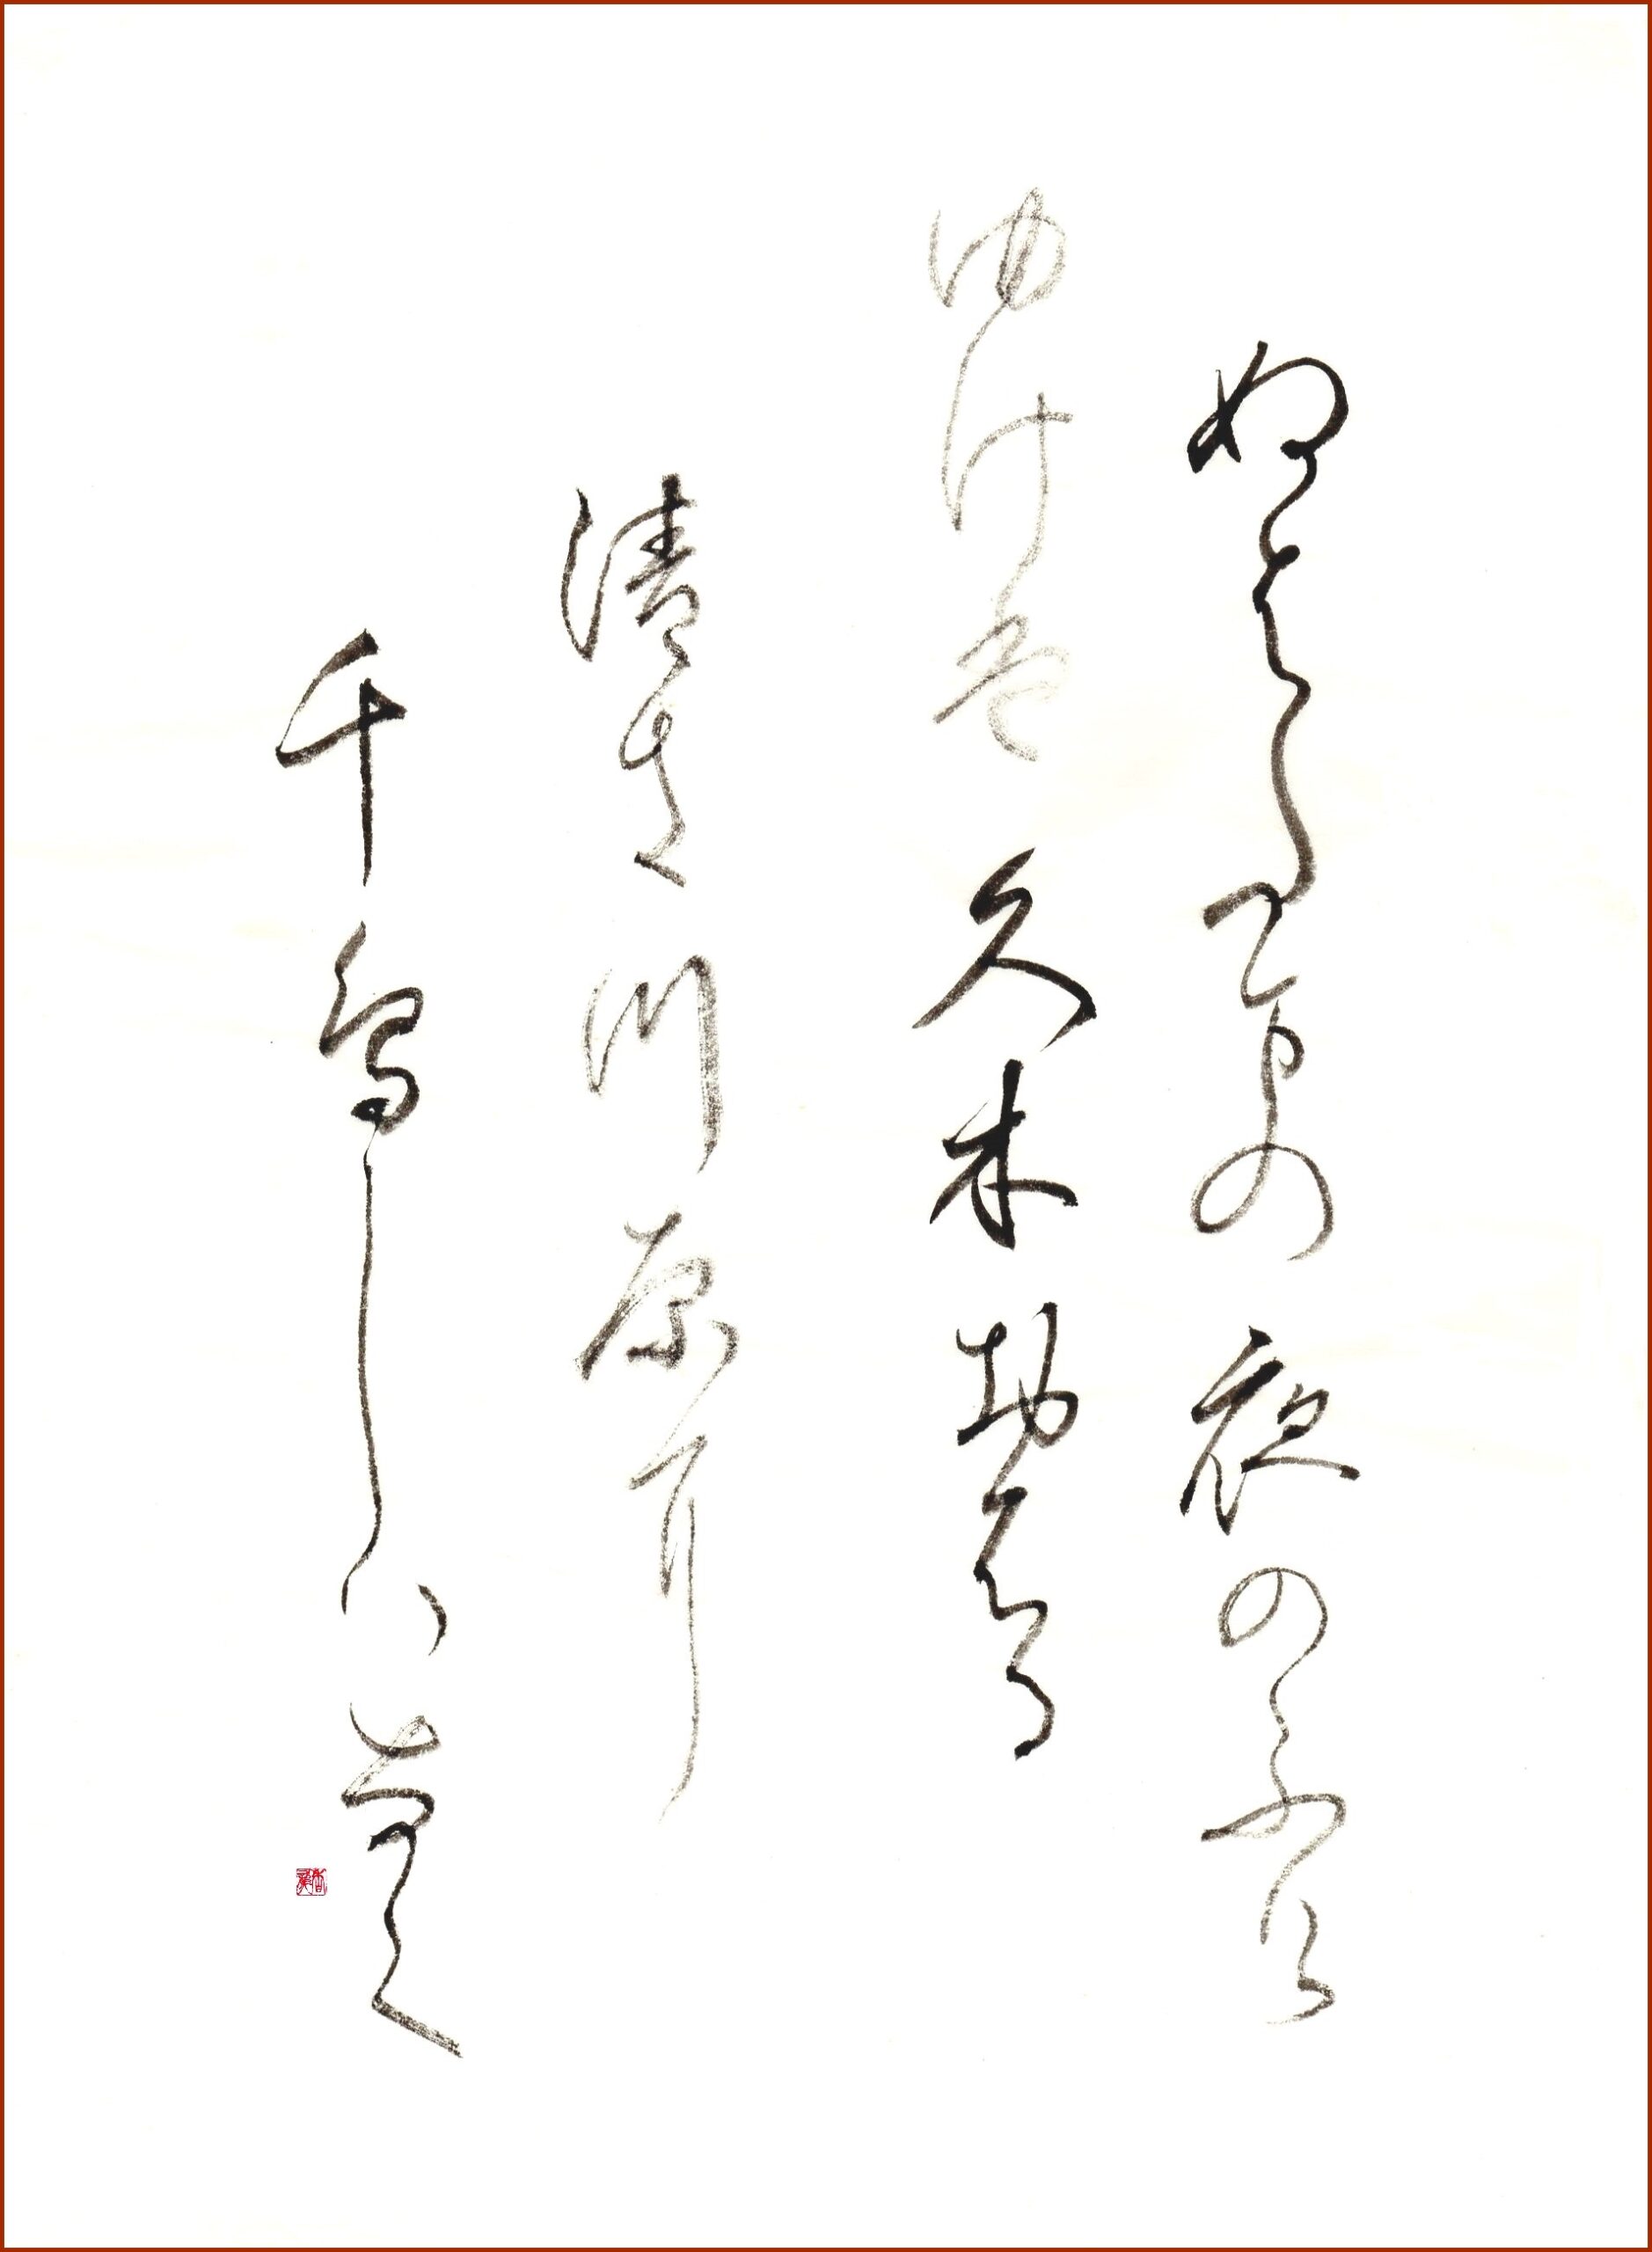 ぬばたまの夜のふけ
ゆけば久木生ふる
清き川原に
千鳥しば鳴く